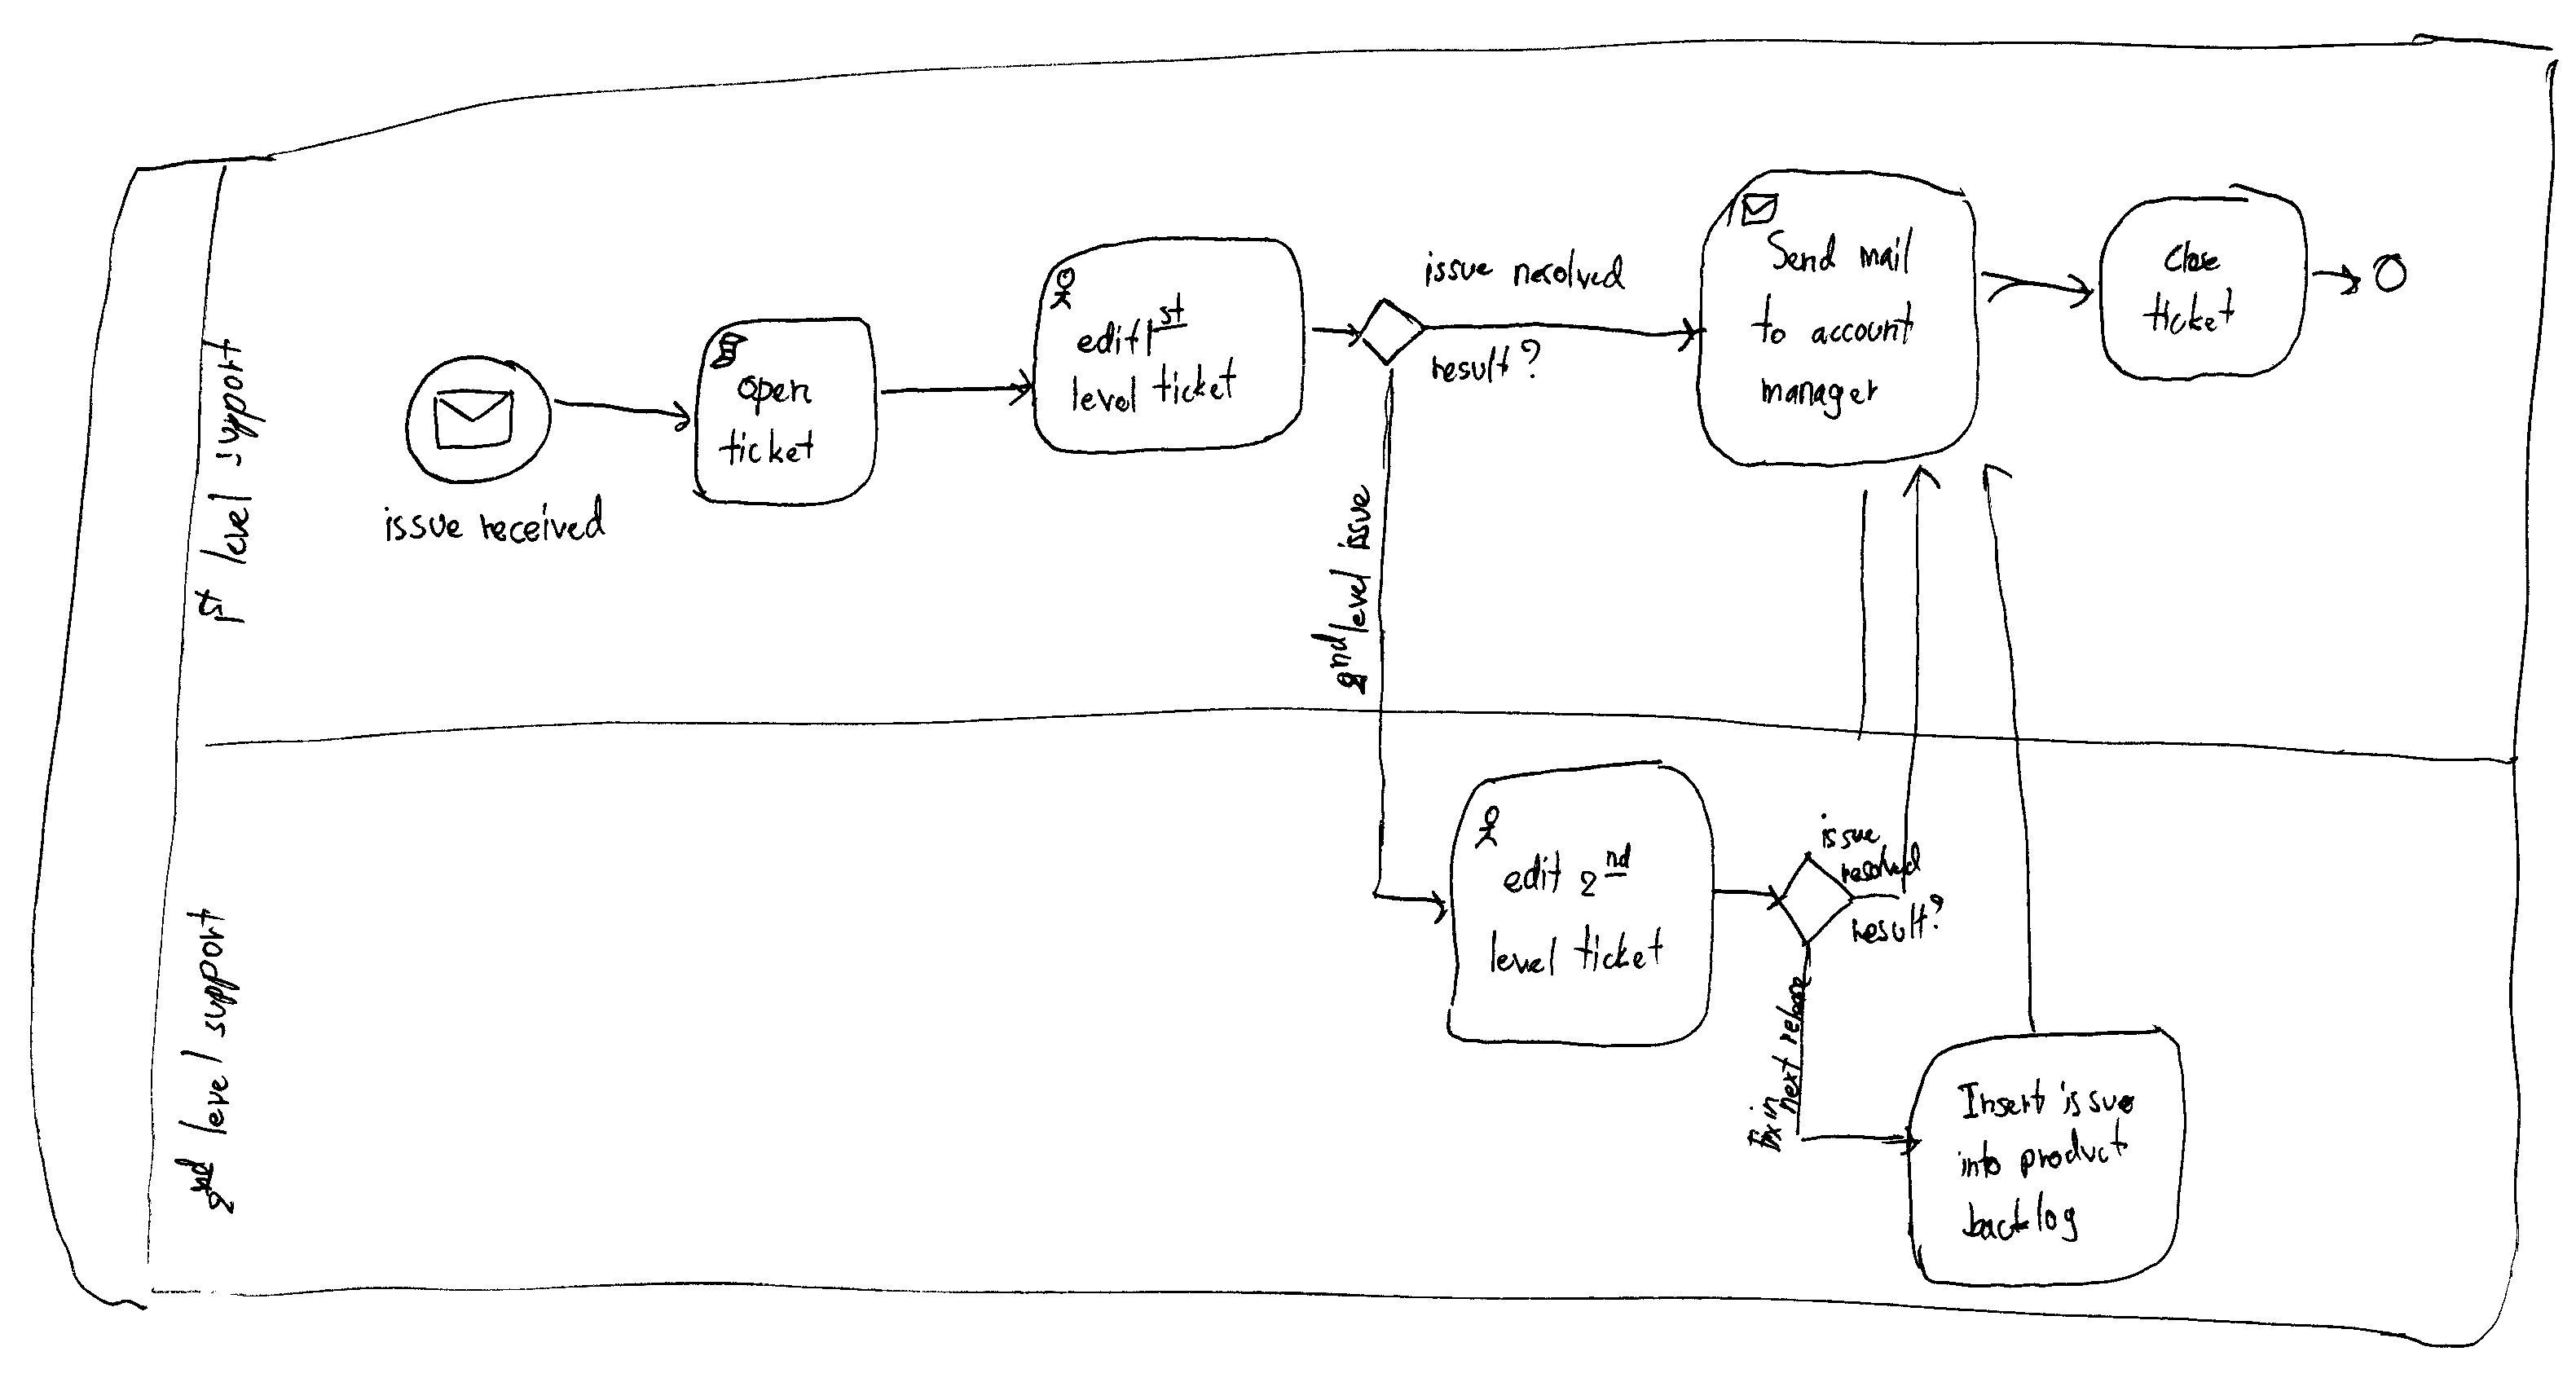 1st level support
issue received
open
ticket
edit 1st
level ticket
issue resolved
result?
2nd level issue
Send mail
to account
manager
Close
ticket
2nd level support
edit 2nd
level ticket
issue
resolved
result?
fix in
next release
Insert issue
into product
backlog